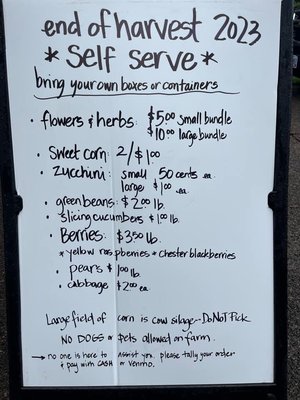 end of harvest 2023
* Self serve *
bring your own boxes or containers
• flowers & herbs: $5.00 small bundle
$10.00 large bundle
• Sweet corn: 2/$1.00
• Zucchini: small 50 cents ea.
large $1.00 ea.
• green beans: $2.00 lb.
• Slicing cucumbers $1.00 lb.
• Berries: $3.50 lb.
* yellow raspberries * Chester blackberries
• pears $1.00 lb.
• cabbage $2.00 ea.
Large field of corn is cow silage - Do NOT Pick
NO DOGS or pets allowed on farm.
→ no one is here to assist you, please tally your order
& pay with CASH or Venmo.